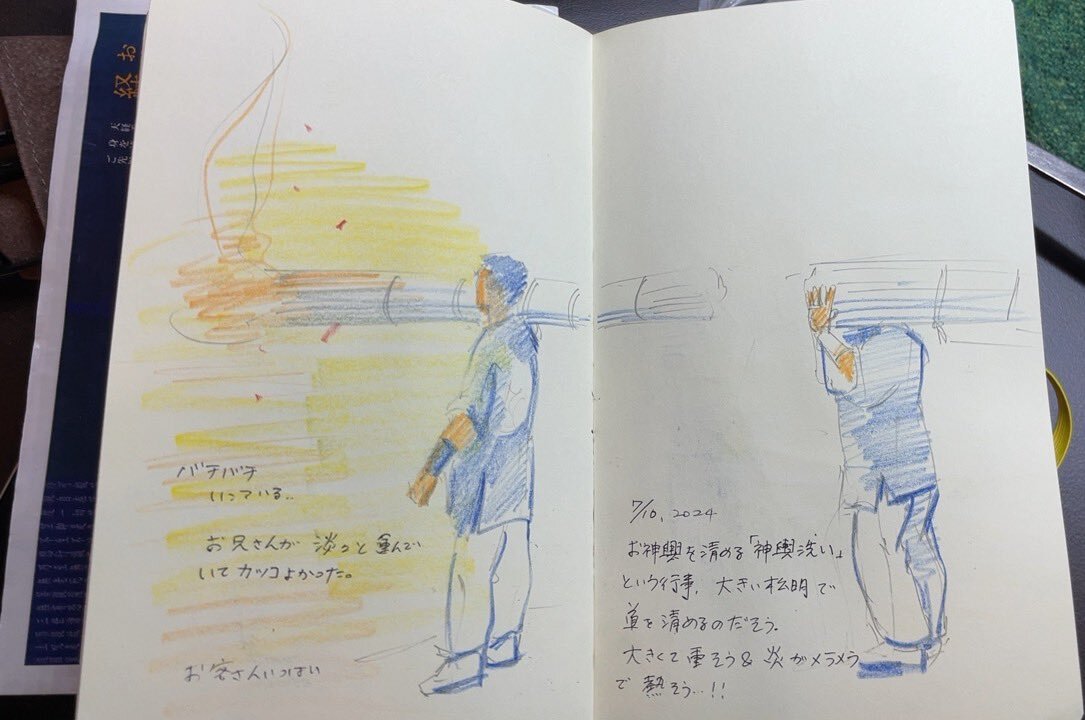 お
経
バチバチ
いっている..
お兄さんが 淡々と運んで
いて カッコよかった。
お客さんいっぱい
7/10, 2024
お神輿を清める「神輿洗い」
という行事. 大きい松明で
道を清めるのだそう。
大きくて重そう & 炎がメラメラ
で 熱そう…!!